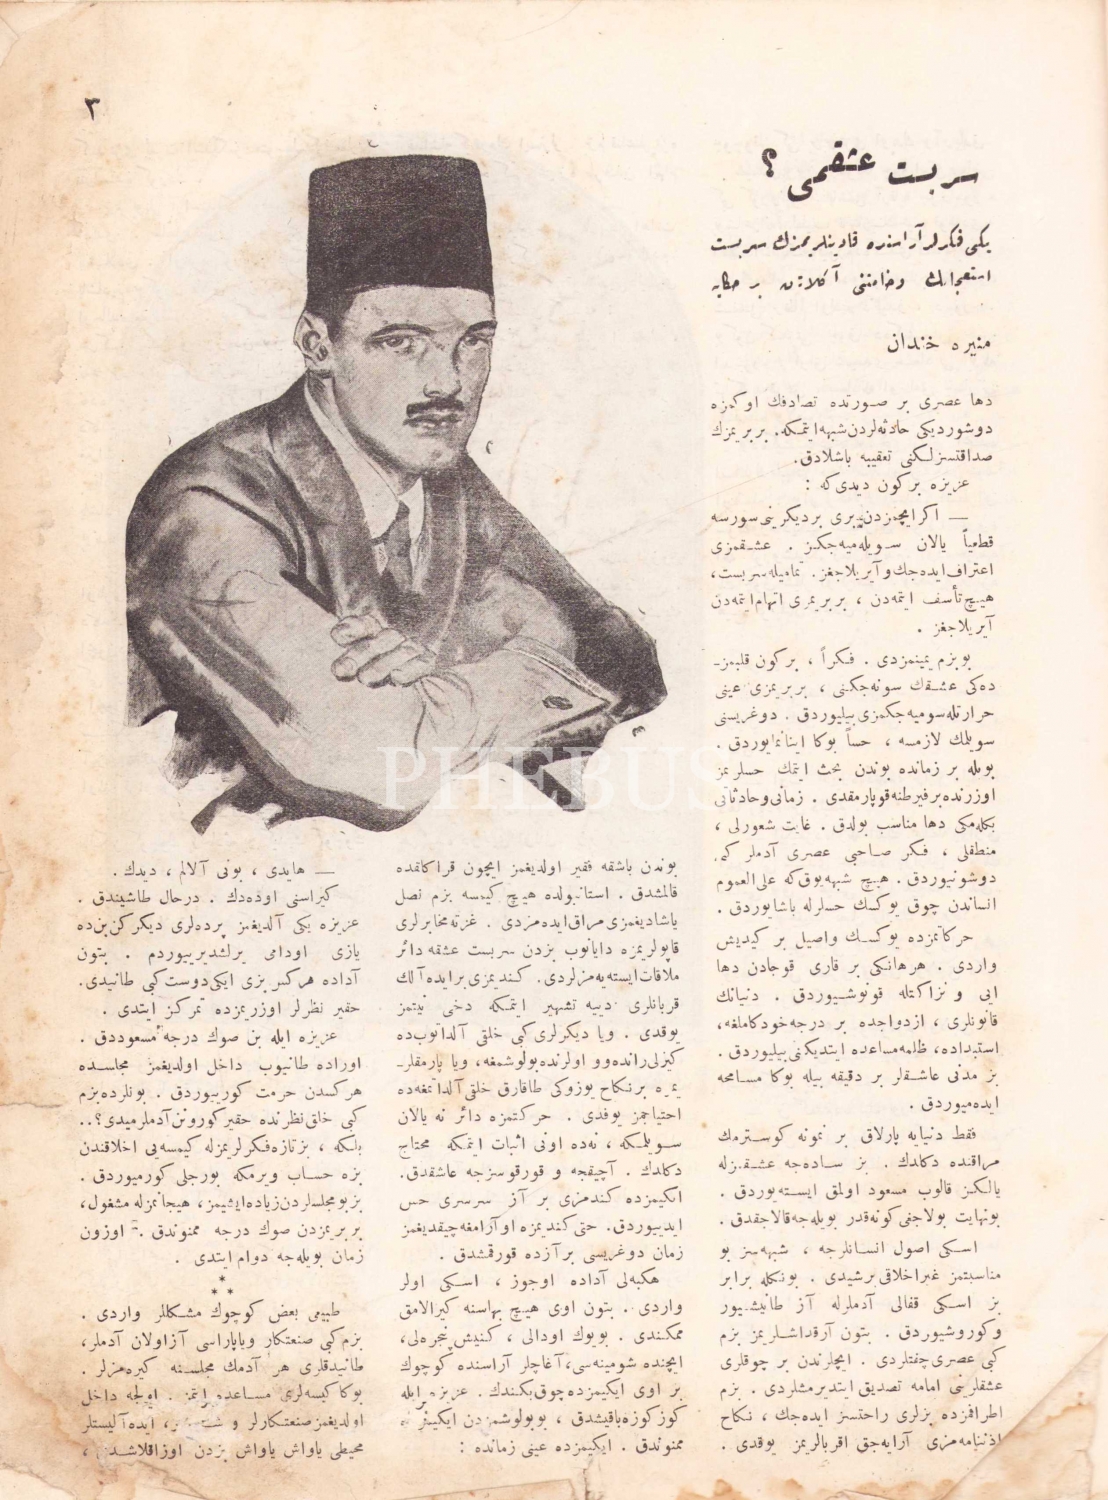 ٣
سربست عشقمى ؟
يكى فكرلر آراسنده قادينلريمزك سربست
استعجالنك وخامتنى آكلاتان بر حكايه
منيره خندان
دها عصرى بر صورتده تصادفك اوكمزه
دوشورديكى حادثه‌لردن شبهه ايتمكه. بربريمزك
صداقتسزلكنى تعقيبه باشلادق.
عزيزه بر كون ديدى كه :
— اكر ايچمزدن برى بر ديكرينى سورسه
قطعياً يالان سويله‌ميه‌جكز . عشقمزى
اعتراف ايده‌جك و آيريلاجغز. تماميله سربست،
هيچ تأسف ايتمه‌دن ، بربريمزى اتهام ايتمه‌دن
آيريلاجغز .
بو بزم يمينمزدى . فكراً ، بر كون قلبمز-
ده‌كى عشقك سونه‌جكنى ، بربريمزى عينى
حرارتله سوميه‌جكمزى بيليوردق . دوغريسنى
سويلمك لازمسه ، حساً بوكا اينانمايوردق .
بويله بر زمانده بوندن بحث ايتمك حسلريمز
اوزرنده بر فيرطنه قوپارمقدى . زمانى و حادثاتى
بكله‌مكى دها مناسب بولدق . غايت شعورلى ،
منطقلى ، فكر صاحبى عصرى آدملر كبى
دوشونيوردق . هيچ شبهه يوق كه على‌العموم
انساندن چوق يوكسك حسلرله ياشايوردق .
حركاتمزده يوكسك واصيل بر كيديش
واردى . هر هانكى بر قارى قوجادن دها
ايى و نزاكتله قونوشيوردق . دنيانك
قانونلرى ، ازدواجده بر درجه خودكاملغه،
استبداده، ظلمه مساعده ايتديكنى بيليوردق .
بز مدنى عاشقلر بر دقيقه بيله بوكا مسامحه
ايده‌ميوردق .
فقط دنيايه پارلاق بر نمونه كوسترمك
مراقنده دكلدك . بز ساده‌جه عشقمزله
يالكز قالوب مسعود اولمق ايسته‌يوردق .
بونهايت بولاجغى كونه قدر بويله‌جه قالاجقدق .
اسكى اصول انسانلرجه ، شبهه‌سز بو
مناسبتمز غيراخلاقى برشيدى . بونكله برابر
بز اسكى قفالى آدملرله آز طانيشيور
و كوروشيوردق . بتون آرقداشلريمز بزم
كبى عصرى چفتلردى . ايچلرندن بر چوقلرى
عشقلرينى امامه تصديق ايتديرمشلردى . بزم
اطرافمزده بزلرى راحتسز ايده‌جك ، نكاح
اذننامه‌مزى آرايه‌جق اقربالريمز يوقدى .
بوندن باشقه فقير اولديغمز ايچون قراكلقده
قالمشدق . استانبولده هيچ كيمسه بزم نصل
ياشاديغمزى مراق ايده‌مزدى . غزته مخابرلرى
قاپولريمزه دايانوب بزدن سربست عشقه دائر
ملاقات ايسته‌يه‌مزلردى. كنديمزى بر ايده‌آلك
قربانلرى دييه تشهير ايتمكه دخى نيتمز
يوقدى . ويا ديكرلرى كبى خلقى آلداتوب‌ده
كيزلى رانده‌وو اولرنده بولوشمغه، ويا پارمقلر-
يمزه بر نكاح يوزوكى طاقارق خلقى آلداتمغه‌ده
احتياجمز يوقدى . حركتمزه دائر نه يالان
سويلمكه ، نه‌ده اونى اثبات ايتمكه محتاج
دكلدك . آچيقجه و قورقوسزجه عاشقدق.
ايكيمزده كندمزى بر آز سرسرى حس
ايديیوردق. حتى كنديمزه او آرامغه چيقديغمز
زمان دوغريسى بر آزده قورقمشدق .
هكبه‌لى آداده اوجوز ، اسكى اولر
واردى . بتون اوى هيچ بهاسنه كيرالامق
ممكندى . بويوك اودالى ، كنيش پنجره‌لى،
ايچنده شومينه‌سى، آغاچلر آراسنده كوچوك
بر اوى ايكيمزده چوق بكندك. عزيزه ايله
كوز كوزه باقيشدق ، بو بولوشمزدن ايكيمزده
ممنوندق . ايكيمزده عينى زمانده :
— هايدى ، بونى آلالم ، ديدك .
كيراسنى اوده‌دك . درحال طاشيندق .
عزيزه يكى آلديغمز پرده‌لرى ديكركن بن‌ده
يازى اودامى يرلشديرييوردم . بتون
آداده هركس بزى ايكى دوست كبى طانيدى.
حقير نظرلر اوزريمزده تمركز ايتدى .
عزيزه ايله بن صوك درجه مسعوددق .
اوراده طانيوب داخل اولديغمز مجلسده
هركسدن حرمت كورييوردق . بونلرده بزم
كبى خلق نظرنده حقير كورونن آدملرميدى؟..
بلكه ، بز تازه فكرلريمزله كيمسه‌يى اخلاقندن
بزه حساب ويرمكه بورجلى كورميوردق .
بز بو مجلسلردن زياده ايشيمز، هيجانمزله مشغول،
بربريمزدن صوك درجه ممنوندق . اوزون
زمان بويله‌جه دوام ايتدى .
* * *
طبيعى بعض كوچوك مشكللر واردى .
بزم كبى صنعتكار وياپاراسى آز اولان آدملر،
طانيدقلرى هر آدمك مجلسنه كيره‌مزلر .
بوكا كيسه‌لرى مساعده ايتمز . اولجه داخل
اولديغمز صنعتكارلر و ، ايده‌آليستلر
محيطى ياواش ياواش بزدن اوزاقلاشدى ،
PHEBUS